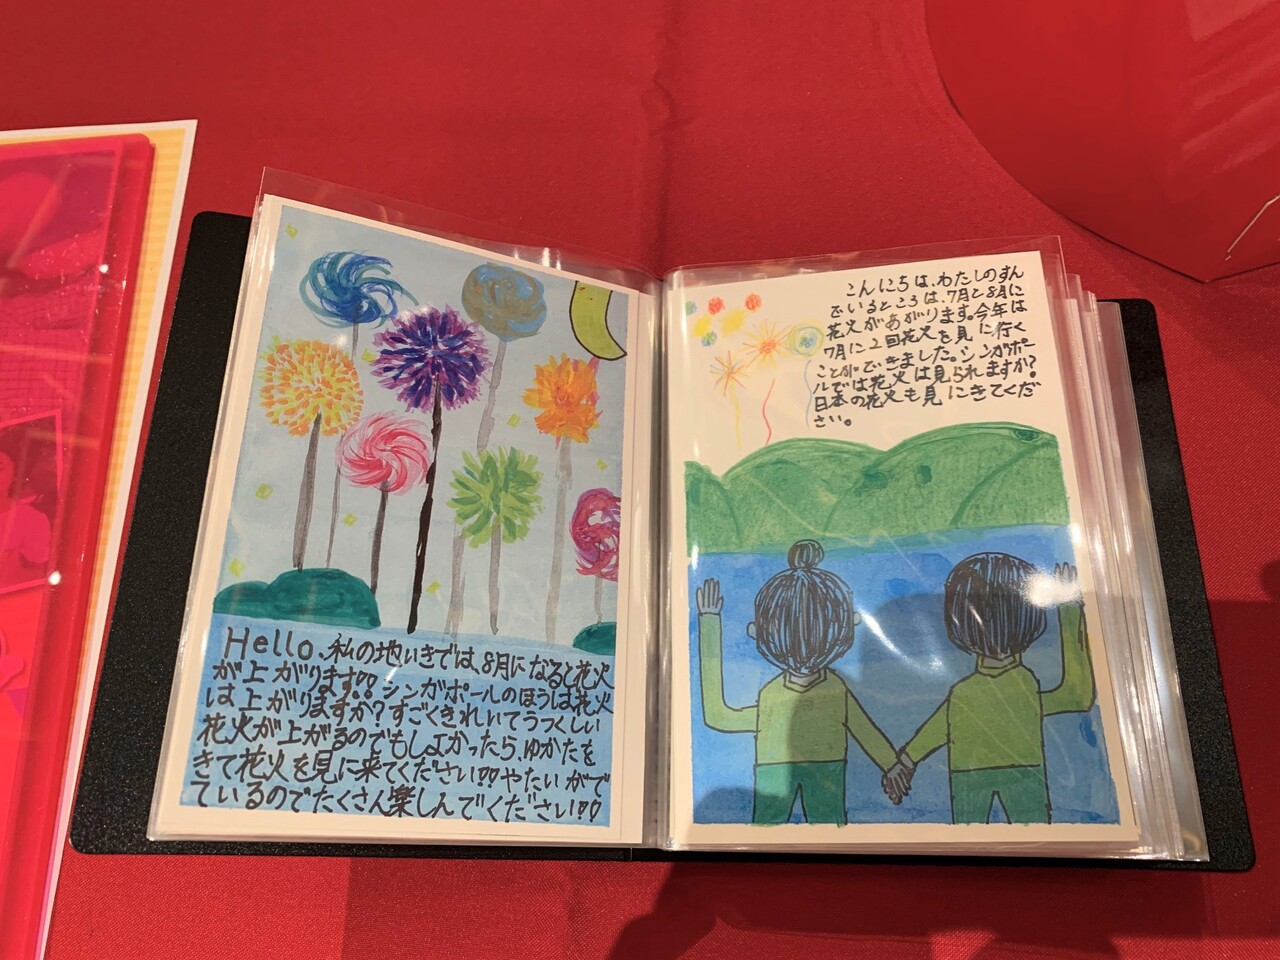 Hello、私の地いきでは、8月になると花火
が上がります!! シンガポールのほうは花火
は上がりますか？すごくきれいでうつくしい
花火が上がるのでもしよかったら、ゆかたを
きて花火を見に来てください!!やたいがで
ているのでたくさん楽しんでください!!
こんにちは、わたしのすん
でいるところは、7月と8月に
花火があがります。今年は
7月に2回花火を見に行く
ことができました。シンガポー
ルでは花火は見られますか？
日本の花火も見にきてくだ
さい。